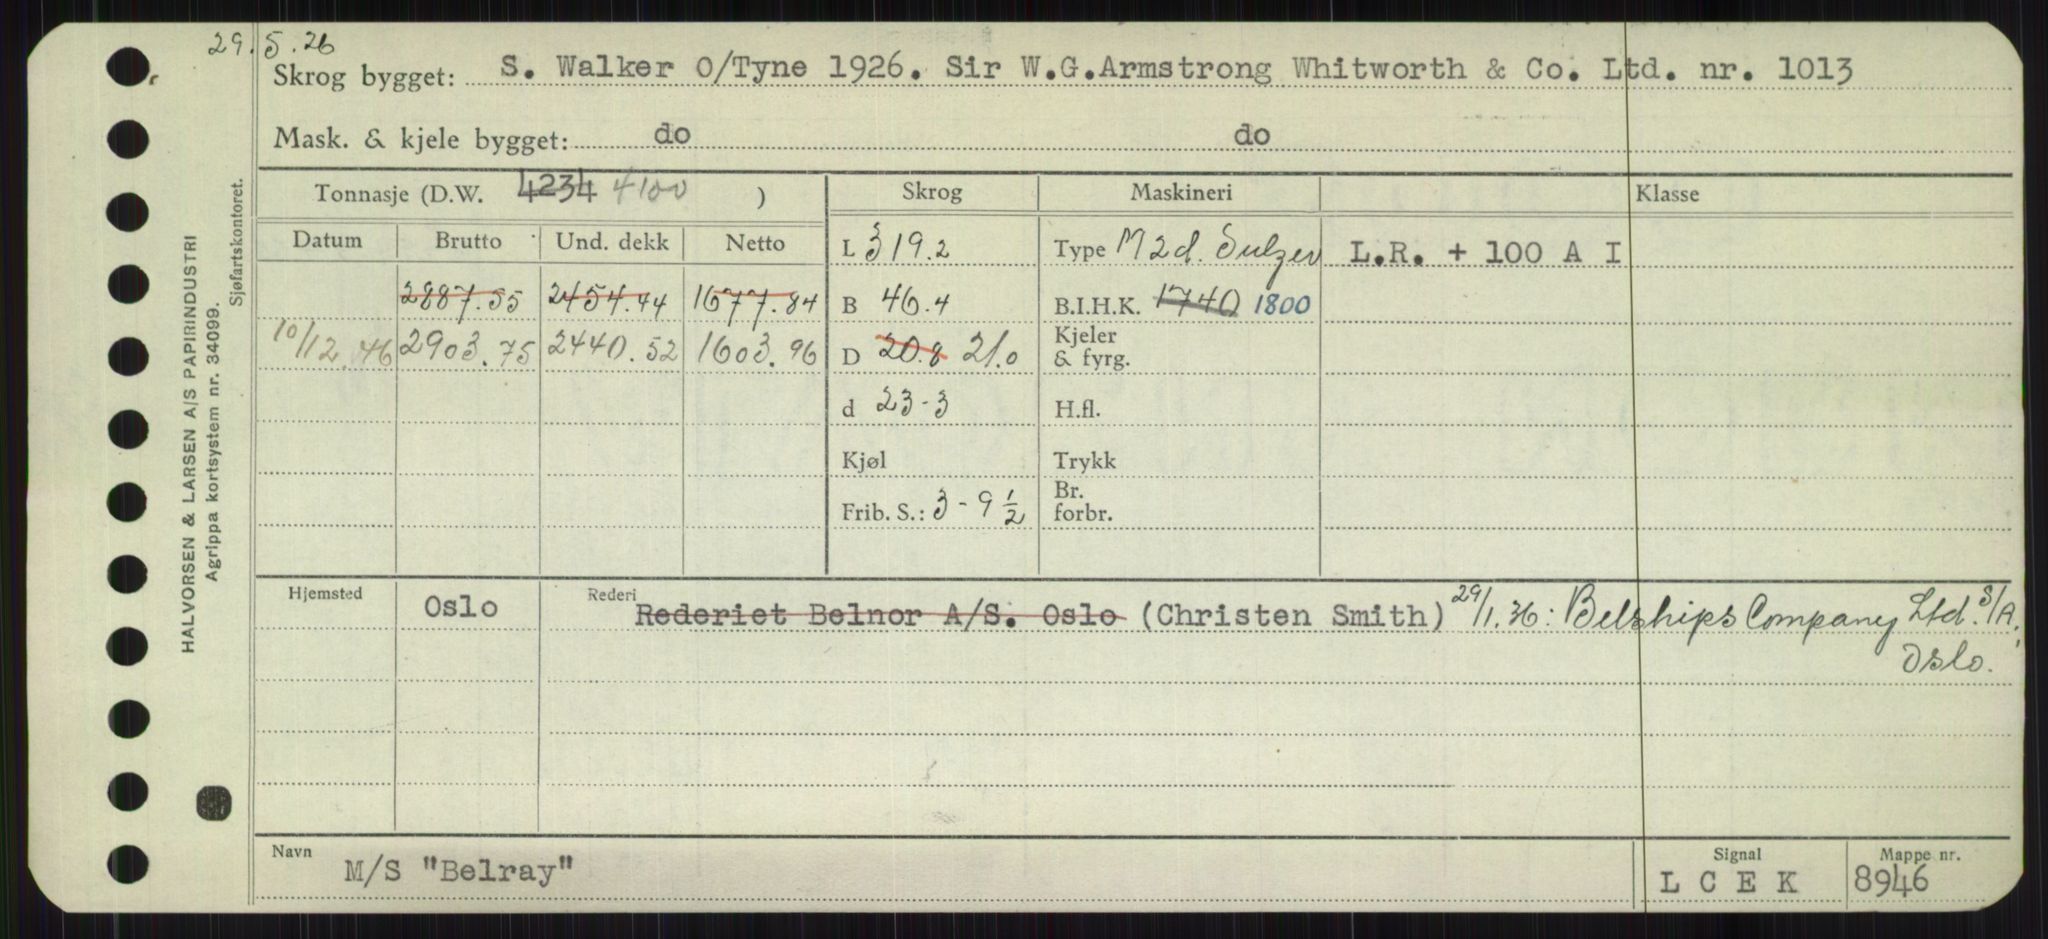 29.5.26
Skrog bygget: S. Walker O/Tyne 1926. Sir W.G.Armstrong Whitworth & Co. Ltd. nr. 1013
Mask. & kjele bygget: do do
Tonnasje (D.W. 4234 4100 ) Skrog Maskineri Klasse
Datum Brutto Und. dekk Netto L 319.2 Type M 2d. Sulzer L.R. + 100 A I
2887.55 2454.44 1677.84 B 46.4 B.I.H.K. 1740 1800
10/12.46 2903.75 2440.52 1603.96 D 20.8 21.0 Kjeler & fyrg.
d 23-3 H.fl.
Kjøl Trykk
Frib. S.: 3-9 1/2 Br. forbr.
Hjemsted Oslo Rederi Rederiet Belnor A/S. Oslo (Christen Smith) 29/1.36: Belships Company Ltd. S/A,
Oslo.
Navn M/S "Belray" Signal L C E K Mappe nr. 8946
HALVORSEN & LARSEN A/S PAPIRINDUSTRI
Agrippa kortsystem nr. 34099.
Sjøfartskontoret.